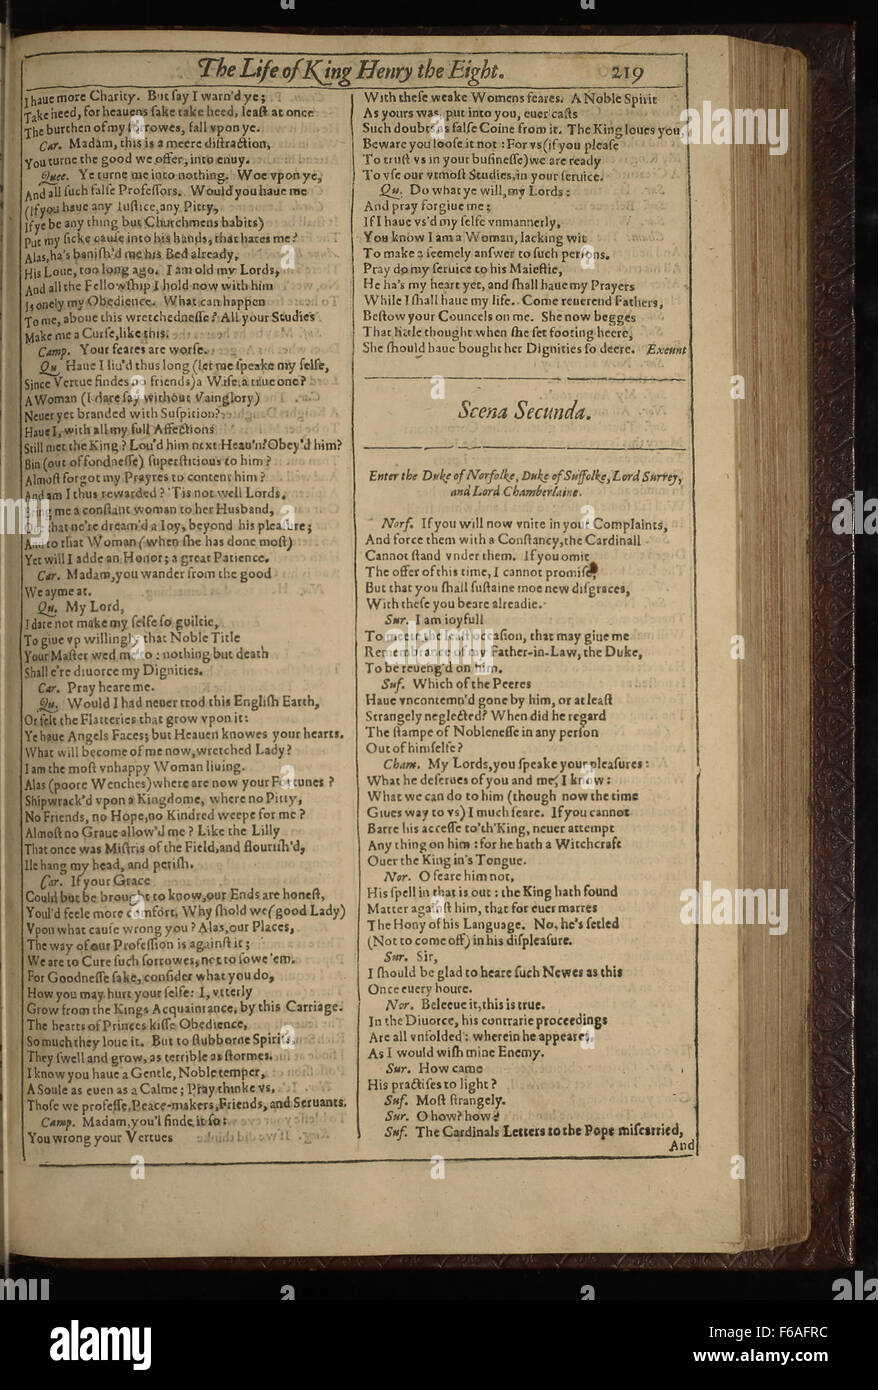 The Life of King Henry the Eight. 219
I haue more Charity. But ſay I warn'd ye;
Take heed, for heauens ſake take heed, leaſt at once
The burthen of my ſorrowes, fall vpon ye.
Car. Madam, this is a meere diſtraction,
You turne the good we offer, into enuy.
Quee. Ye turne me into nothing. Woe vpon ye,
And all ſuch falſe Profeſſors. Would you haue me
(If you haue any Iuſtice, any Pitty,
If ye be any thing but Churchmens habits)
Put my ſicke cauſe into his hands, that hates me?
Alas, ha's baniſh'd me his Bed already,
His Loue, too long ago. I am old my Lords,
And all the Fellowſhip I hold now with him
Is onely my Obedience. What can happen
To me, aboue this wretchedneſſe? All your Studies
Make me a Curſe, like this.
Camp. Your feares are worſe.
Qu. Haue I liu'd thus long (let me ſpeake my ſelfe,
Since Vertue findes no friends) a Wife, a true one?
A Woman (I dare ſay without Vainglory)
Neuer yet branded with Suſpition?
Haue I, with all my full Affections
Still met the King? Lou'd him next Heau'n? Obey'd him?
Bin (out of fondneſſe) ſuperſtitious to him?
Almoſt forgot my Prayres to content him?
And am I thus rewarded? 'Tis not well Lords,
Bring me a conſtant woman to her Husband,
One that ne're dream'd a Ioy, beyond his pleaſure;
And to that Woman (when ſhe has done moſt)
Yet will I adde an Honor; a great Patience.
Car. Madam, you wander from the good
We ayme at.
Qu. My Lord,
I dare not make my ſelfe ſo guiltie,
To giue vp willingly that Noble Title
Your Maſter wed me to: nothing but death
Shall e're diuorce my Dignities.
Car. Pray heare me.
Qu. Would I had neuer trod this Engliſh Earth,
Or felt the Flatteries that grow vpon it:
Ye haue Angels Faces; but Heauen knowes your hearts.
What will become of me now, wretched Lady?
I am the moſt vnhappy Woman liuing.
Alas (poore Wenches) where are now your Fortunes?
Shipwrack'd vpon a Kingdome, where no Pitty,
No Friends, no Hope, no Kindred weepe for me?
Almoſt no Graue allow'd me? Like the Lilly
That once was Miſtris of the Field, and flouriſh'd,
Ile hang my head, and periſh.
Car. If your Grace
Could but be brought to know, our Ends are honeſt,
Youl'd feele more comfort. Why ſhold we (good Lady)
Vpon what cauſe wrong you? Alas, our Places,
The way of our Profeſſion is againſt it;
We are to Cure ſuch ſorrowes, not to ſowe 'em.
For Goodneſſe ſake, conſider what you do,
How you may hurt your ſelfe: I, vtterly
Grow from the Kings Acquaintance, by this Carriage.
The hearts of Princes kiſſe Obedience,
So much they loue it. But to ſtubborne Spirits,
They ſwell and grow, as terrible as ſtormes.
I know you haue a Gentle, Noble temper,
A Soule as euen as a Calme; Pray thinke vs,
Thoſe we profeſſe, Peace-makers, Friends, and Seruants.
Camp. Madam, you'l finde it ſo:
You wrong your Vertues
With theſe weake Womens feares. A Noble Spirit
As yours was, put into you, euer caſts
Such doubts as falſe Coine from it. The King loues you,
Beware you looſe it not: For vs (if you pleaſe
To truſt vs in your buſineſſe) we are ready
To vſe our vtmoſt Studies, in your ſeruice.
Qu. Do what ye will, my Lords:
And pray forgiue me;
If I haue vs'd my ſelfe vnmannerly,
You know I am a Woman, lacking wit
To make a ſeemely anſwer to ſuch perſons.
Pray do my ſeruice to his Maieſtie,
He ha's my heart yet, and ſhall haue my Prayers
While I ſhall haue my life. Come reuerend Fathers,
Beſtow your Councels on me. She now begges
That little thought when ſhe ſet footing heere,
She ſhould haue bought her Dignities ſo deere. Exeunt
Scena Secunda.
Enter the Duke of Norfolke, Duke of Suffolke, Lord Surrey,
and Lord Chamberlaine.
Norf. If you will now vnite in your Complaints,
And force them with a Conſtancy, the Cardinall
Cannot ſtand vnder them. If you omit
The offer of this time, I cannot promiſe,
But that you ſhall ſuſtaine moe new diſgraces,
With theſe you beare alreadie.
Sur. I am ioyfull
To meete the leaſt occaſion, that may giue me
Remembrance of my Father-in-Law, the Duke,
To be reueng'd on him.
Suf. Which of the Peeres
Haue vncontemn'd gone by him, or at leaſt
Strangely neglected? When did he regard
The ſtampe of Nobleneſſe in any perſon
Out of himſelfe?
Cham. My Lords, you ſpeake your pleaſures:
What he deſerues of you and me, I know:
What we can do to him (though now the time
Giues way to vs) I much feare. If you cannot
Barre his acceſſe to'th'King, neuer attempt
Any thing on him: for he hath a Witchcraft
Ouer the King in's Tongue.
Nor. O feare him not,
His ſpell in that is out: the King hath found
Matter againſt him, that for euer marres
The Hony of his Language. No, he's ſetled
(Not to come off) in his diſpleaſure.
Sur. Sir,
I ſhould be glad to heare ſuch Newes as this
Once euery houre.
Nor. Beleeue it, this is true.
In the Diuorce, his contrarie proceedings
Are all vnfolded: wherein he appeares,
As I would wiſh mine Enemy.
Sur. How came
His practiſes to light?
Suf. Moſt ſtrangely.
Sur. O how? how?
Suf. The Cardinals Letters to the Pope miſcarried,
And
alamy
Image ID: F6AFRC
www.alamy.com